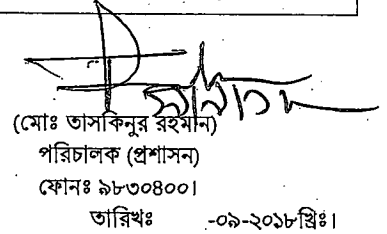 (মোঃ তাসকিনুর রহমান)
পরিচালক (প্রশাসন)
ফোনঃ ৯৮৩০৪০০।
তারিখঃ -০৯-২০১৮খ্রিঃ।